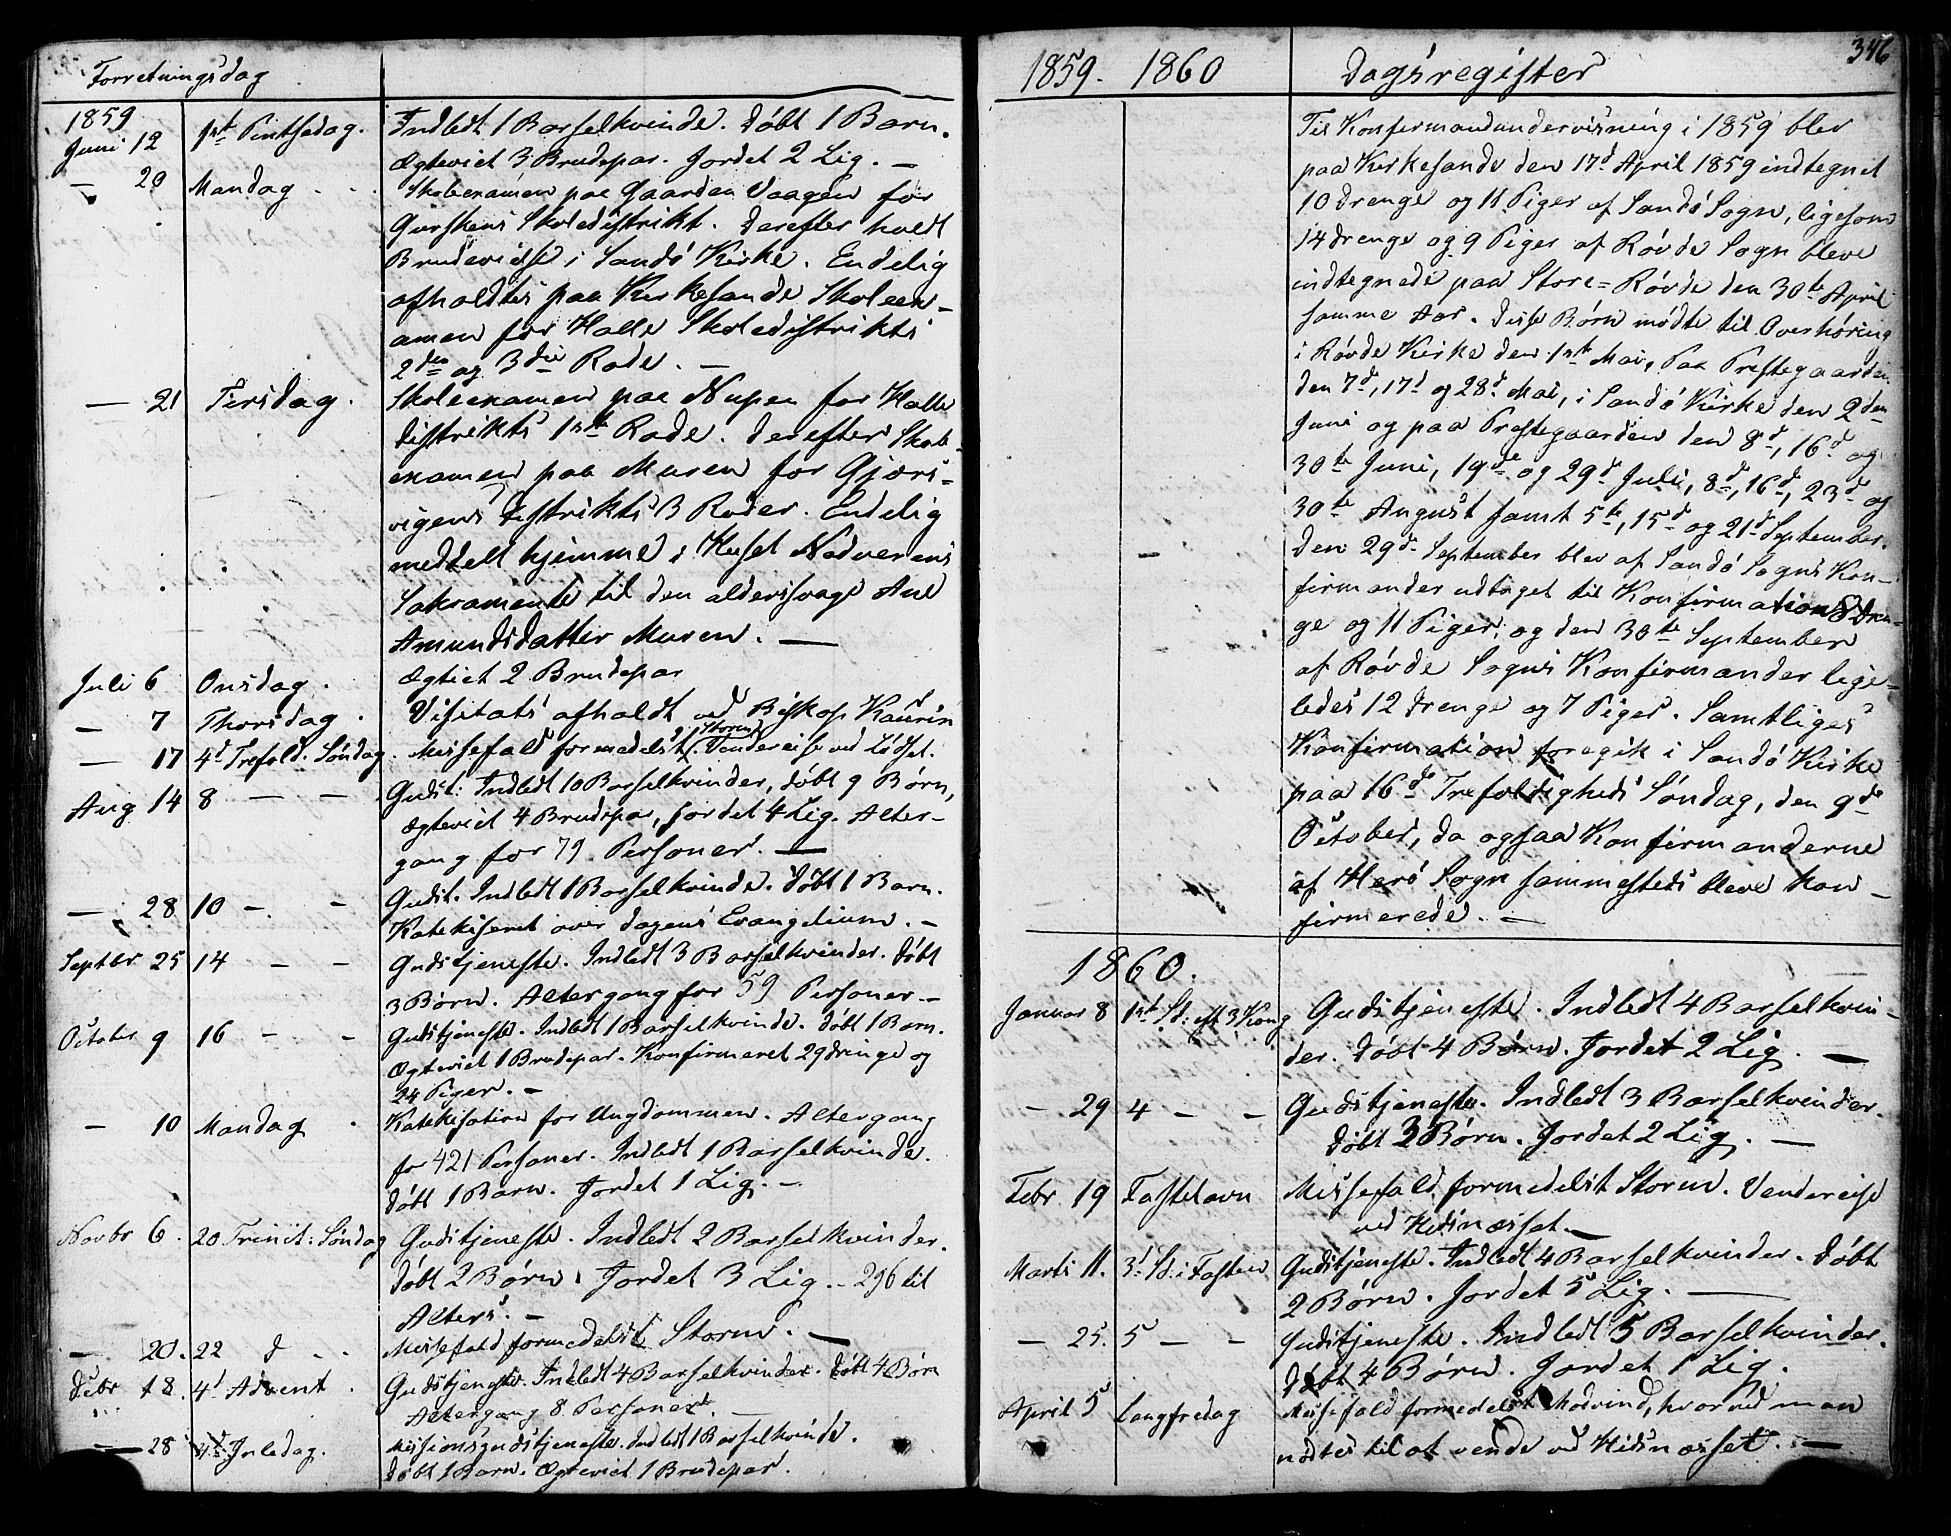 Forretningsdag
1859
Juni 12 1ste Pintsedag. Indledt 1 Barselkvinde. Døbt 1 Barn.
Ægteviet 3 Brudepar. Jordet 2 Lig. —
— 20 Mandag Skoleexamen paa Gaarden Vaagen for
Gurskens Skoledistrikt. Derefter holdt
Brudevielse i Sandø Kirke. Endelig
afholdtes paa Kirkesande Skoleex-
amen for Halle Skoledistrikts
2den og 3die Rode. —
— 21 Tirsdag. Skoleexamen paa Nupen for Halle
Distrikts 1ste Rode. Derefter Skole-
examen paa Muren for Gjærs-
vigens Distrikts 3 Roder. Endelig
meddelt hjemme i Huset Nadverens
Sakramente til den aldersvage Ane
Amundsdatter Muren. —
Juli 6 Onsdag. Ægtiet 2 Brudepar
— 7 Thorsdag. Visitats afholdt ved Biskop Kaurin
— 17 4d Trefold. Søndag. Messefald formedelst Storm. Vendereise ved
Aug 14 8 — — Gudst: Indledt 10 Barselkvinder, døbt 9 Børn,
Ægteviet 4 Brudepar, jordet 4 Lig. Alter-
gang for 79 Personer. —
— 28 10 — — Gudst. Indledt 1 Barselkvinde. Døbt 1 Barn.
Katekiseret over dagens Evangelium. —
Septbr 25 14 — — Gudstjeneste. Indledt 3 Barselkvinder. Døbt
3 Børn. Altergang for 59 Personer. —
October 9 16 — — Gudstjeneste. Indledt 1 Barselkvinde. Døbt 1 Barn.
Ægteviet 1 Brudepar. Konfirmeret 29 drenge og
24 Piger. —
— 10 Mandag. Katekisation for Ungdommen. Altergang
for 421 Personer. Indledt 1 Barselkvinde.
Døbt 1 Barn. Jordet 1 Lig. —
Novbr 6. 20 Trinit: Søndag Gudstjeneste. Indledt 2 Barselkvinder.
Døbt 2 Børn. Jordet 3 Lig. — 296 til
Alters. —
— 20. 22 d Messefald formedelst Storm. —
Debr 18. 4d Advent. Gudstjeneste. Indledt 4 Barselkvinder. Døbt 4 Børn
Altergang 8 Personer. —
— 28 Juledag. Missionsgudstjeneste. Indledt 1 Barselkvinde.
Døbt 1 Barn. Ægteviet 1 Brudepar.
1859. 1860 Dagsregister 346
Til Konfirmandundervisning i 1859 blev
paa Kirkesande den 17d April 1859 indtegnet
10 Drenge og 11 Piger af Sandø Sogn, ligesom
14 drenge og 9 Piger af Røvde Sogn bleve
indtegnede paa Store=Røvde den 30te April
samme Aar. Disse Børn mødte til Overhøring
i Røvde Kirke den 1ste Mai, Paa Prestegaarden
den 7d, 17d og 28d Mai, i Sandø Kirke den 2den
Juni og paa Prestegaarden den 8d, 16d og
30te Juni, 19de og 29d Juli, 8d, 16d, 23d og
30te August samt 5te, 15d og 21d September.
Den 29d September blev af Sandø Sogns Kon-
firmander udtaget til Konfirmation 8 Dren-
ge og 11 Piger, og den 30te September
af Røvde Sogns Konfirmander lige-
ledes 12 drenge og 7 Piger. Samtliges
Konfirmation foregik i Sandø Kirke
paa 16d Trefoldigheds Søndag, den 9de
October, da ogsaa Konfirmanderne
af Herø Sogn sammesteds bleve kon-
firmerede. —
1860.
Januar 8 1ste Sd: eft 3 Kong Gudstjeneste. Indledt 4 Barselkvin-
der. Døbt 4 Børn. Jordet 2 Lig. —
— 29 4 — — Gudstjeneste. Indledt 3 Barselkvinder.
Døbt 3 Børn. Jordet 2 Lig. —
Febr 19 Fastelavn Messefald formedelst Storm. Vendereise
ved Hidsnæsset. —
Marts 11. 3d Sd: i Fasten Gudstjeneste. Indledt 4 Barselkvinder. Døbt
2 Børn. Jordet 5 Lig. —
— 25. 5 — — Gudstjeneste. Indledt 5 Barselkvinder.
Døbt 4 Børn. Jordet 1 Lig.
April 5 Langfredag Messefald formedelst Modvind, hvorved man
nødtes til at vende ved Hidsnæsset. —